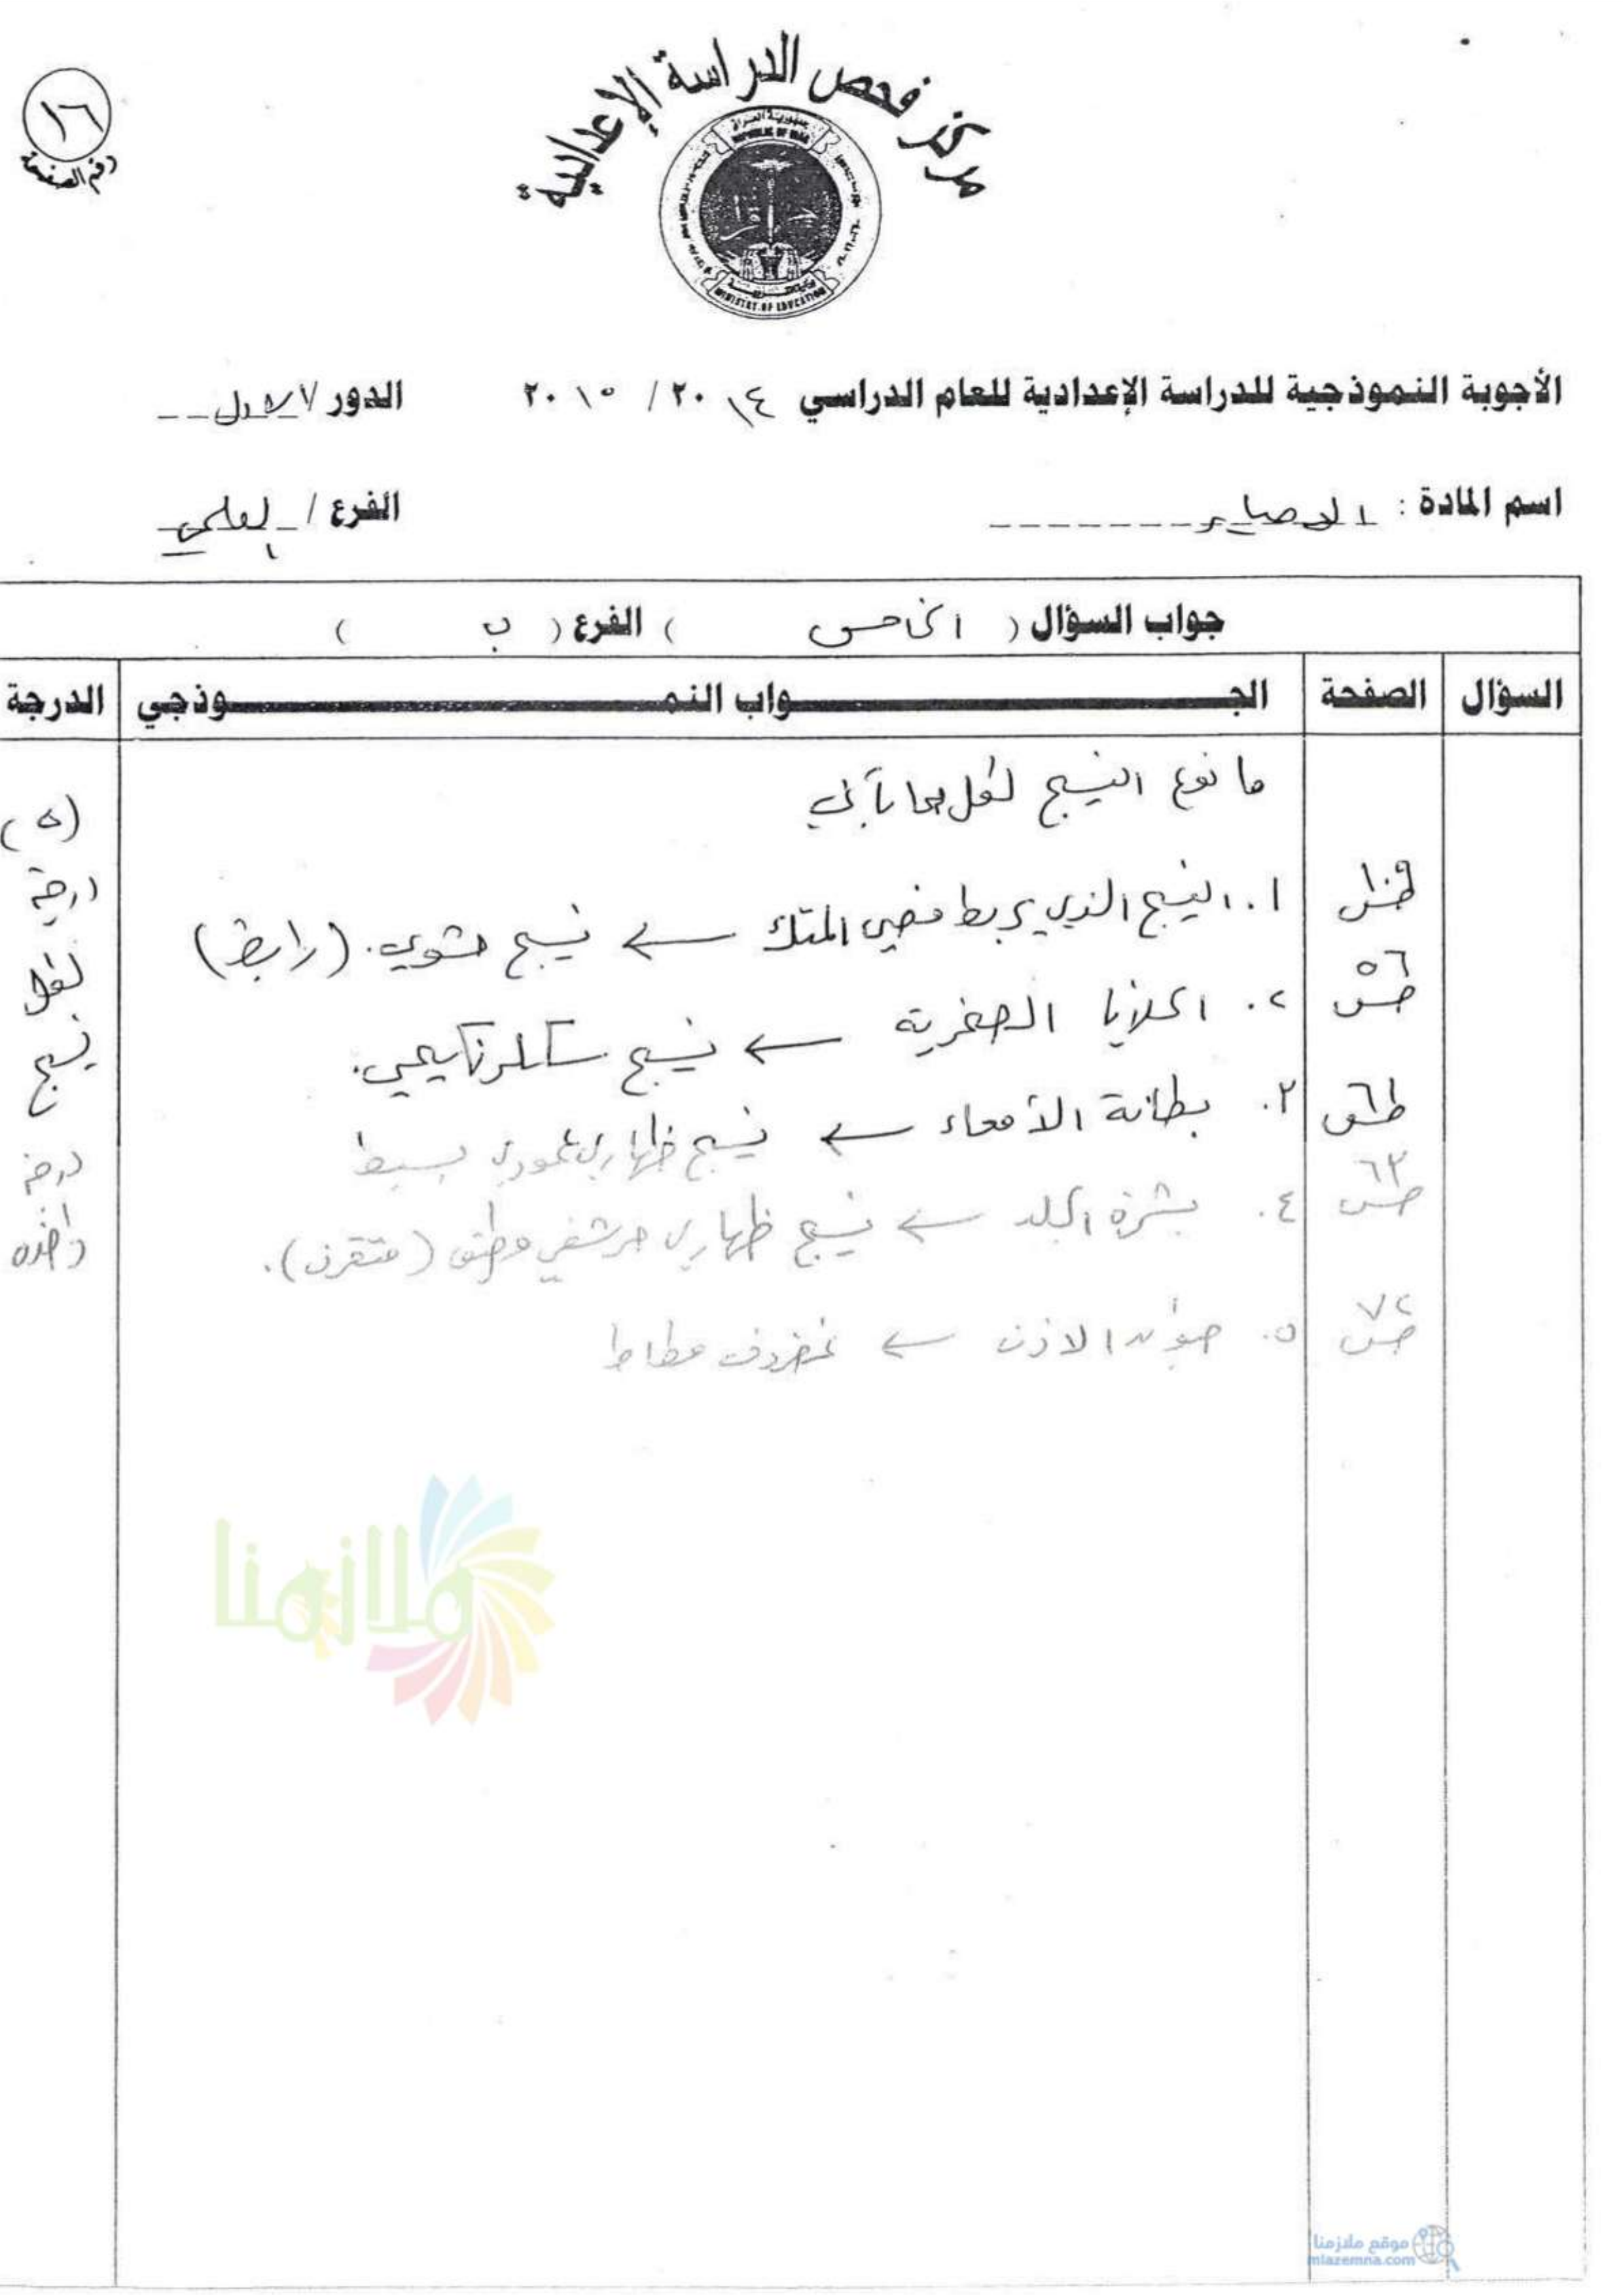 مركز فحص الدراسة الإعدادية
جمهورية العراق
REPUBLIC OF IRAQ
MINISTRY OF EDUCATION
١٦
رقم الصفحة
الأجوبة النموذجية للدراسة الإعدادية للعام الدراسي ٢٠١٤ / ٢٠١٥ الدور / الاول
اسم المادة : الاحياء الفرع / العلمي
جواب السؤال ( الخامس ) الفرع ( ب )
السؤال الصفحة الجـواب النمـوذجي الدرجة
ما نوع النسيج لكل مما يأتي
(٥)
درجة
لكل
نسيج
درجة
واحدة
ص١٠٩ ١. النسيج الذي يربط فصي المتك ← نسيج حشوي. (رابط)
ص٥٦ ٢. الخلايا الصخرية ← نسيج سكلرنكيمي.
ص٦١ ٣. بطانة الأمعاء ← نسيج ظهاري عمودي بسيط
ص٦٣ ٤. بشرة الجلد ← نسيج ظهاري حرشفي مطبق (متقرن).
ص٧٢ ٥. صوان الاذن ← غضروف مطاط
ملازمنا
موقع ملازمنا
mlazemna.com